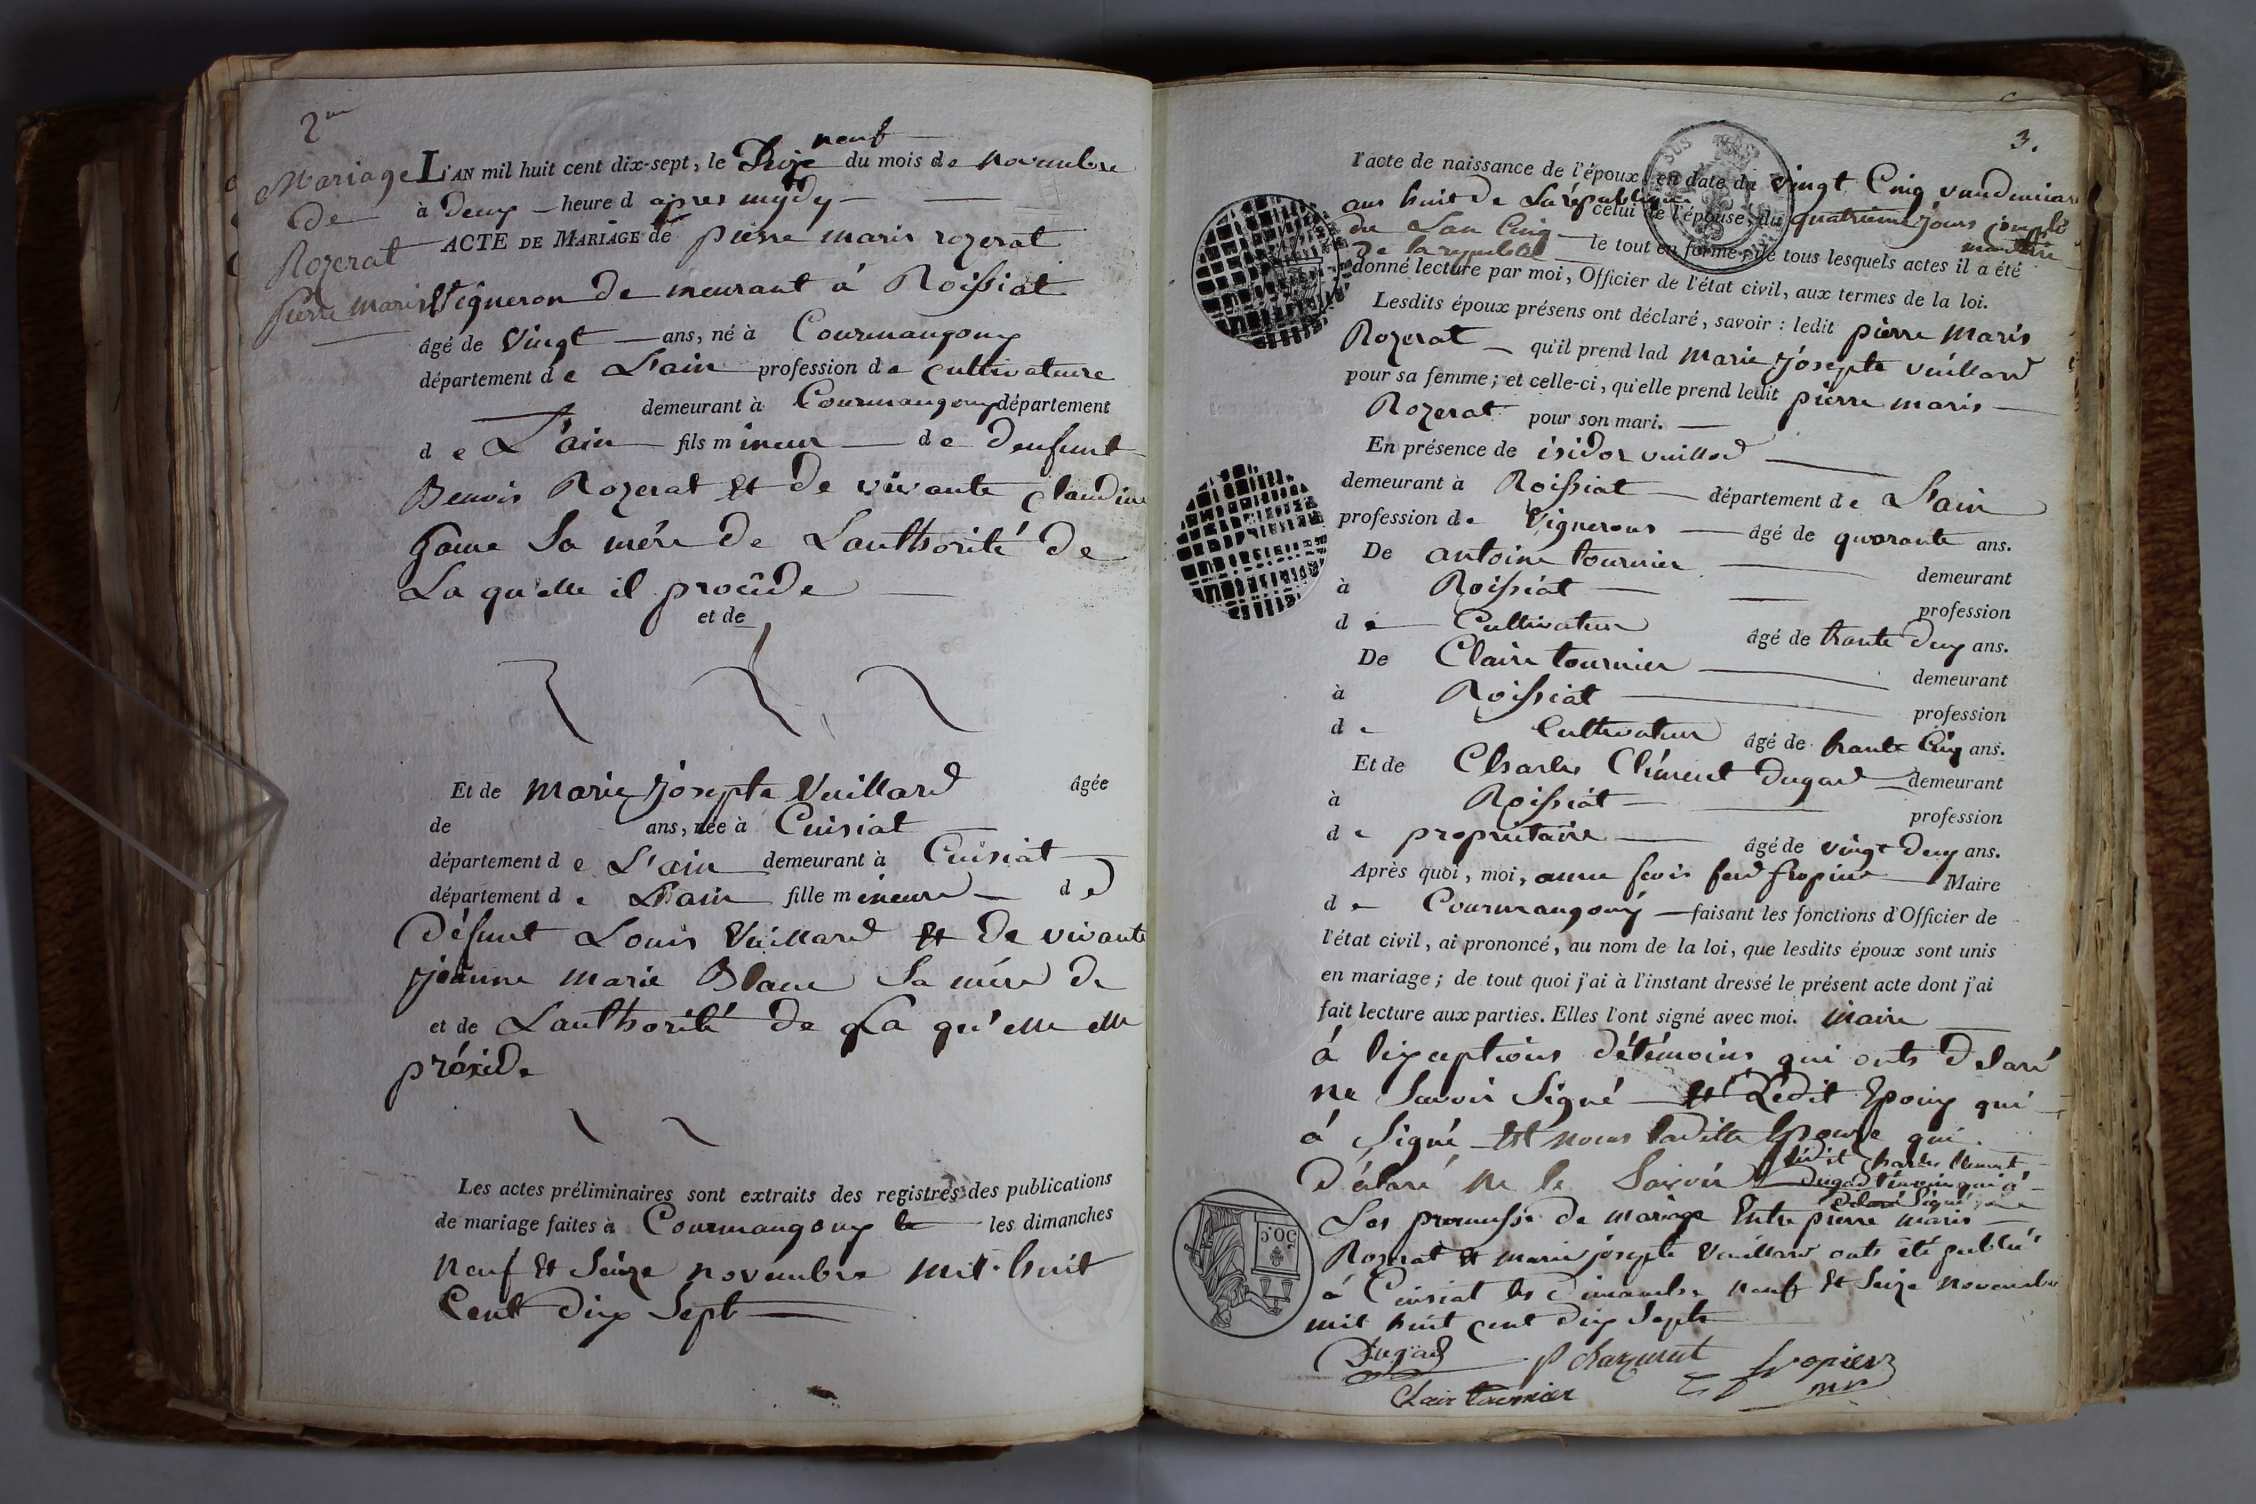 2me
Mariage
de
Rozerat
pierre maris
neuf
L'AN mil huit cent dix-sept, le Dixe du mois de novembre
à deux heure d apres mydy
ACTE DE MARIAGE de pierre maris rozerat
Vigneron de meurant á Roissiat
âgé de vingt ans, né à Courmangoux
département de L'ain profession de cultivature
demeurant à Courmangoux département
de L'ain fils mineur de deufunt
Benois Rozerat et de vivante claudine
game sa mére de Lauthorité de
La qu'elle il procéde
et de
Et de marie josepte Vuillard âgée
de ans, née à Cuisiat
département de L'ain demeurant à Cuisiat
département de L'ain fille mineure de
défunt Louis Vuillard et de vivante
jeanne marie Blanc sa mére de
et de Lauthorité de La qu'elle elle
procéde
Les actes préliminaires sont extraits des registres des publications
de mariage faites à Courmangoux les dimanches
neuf et seize novembre mil huit
cent dix sept
3.
l'acte de naissance de l'époux, en date du vingt cinq vendemiaire
ans huit de La république celui de l'épouse, du quatrieme jours
du L'an cinq
de la republi le tout en forme; de tous lesquels actes il a été
donné lecture par moi, Officier de l'état civil, aux termes de la loi.
Lesdits époux présens ont déclaré, savoir : ledit pierre maris
Rozerat qu'il prend lad marie josepte vuillard
pour sa femme; et celle-ci, qu'elle prend ledit pierre maris
Rozerat pour son mari.
En présence de isidor vuillard
demeurant à Roissiat département de L'ain
profession de Vignerons âgé de quarante ans.
De antoine tournier demeurant
à Roissiat profession
de Cultivateur âgé de trante deux ans.
De Claire tournier demeurant
à Roissiat profession
de Cultivateur âgé de trante cinq ans.
Et de Charles Clément dugad demeurant
à Roissiat profession
de propriétaire âgé de vingt deux ans.
Après quoi, moi, Maire
de Courmangoux faisant les fonctions d'Officier de
l'état civil, ai prononcé, au nom de la loi, que lesdits époux sont unis
en mariage; de tout quoi j'ai à l'instant dressé le présent acte dont j'ai
fait lecture aux parties. Elles l'ont signé avec moi. maire
á l'exceptions détémoins qui onts délaré
ne savoir signé et Lédit Epoux qui
á signé et nous ladite Epouse qui
déclaré ne le savoir Lédit charles clement
dugad témoin qui á
signé
Les promesse de mariage Entre pierre maris
Rozerat et marie josepte Vuillard onts été publiés
á Cuisiat les dimanche neuf et seize novembre
mil huit cent dix septe
Dugad
Clair tournier
50.C